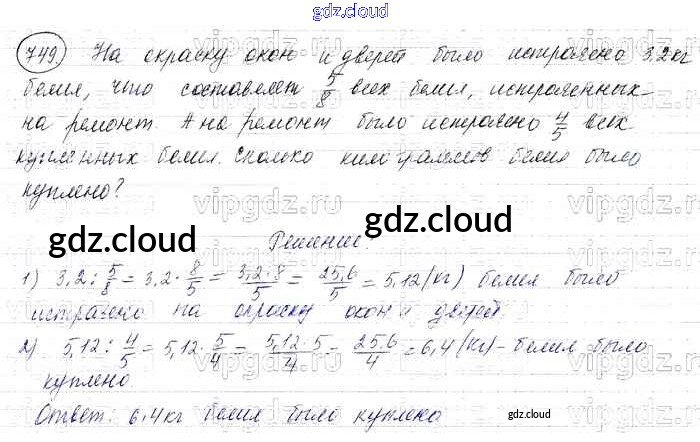 gdz.cloud
749. На окраску окон и дверей было истрачено 3,2 кг
белил, что составляет 5/8 всех белил, истраченных
на ремонт. А на ремонт было истрачено 4/5 всех
купленных белил. Сколько килограммов белил было
куплено?
vipgdz.ru
gdz.cloud gdz.cloud
Решение:
1) 3,2 : 5/8 = 3,2 · 8/5 = 3,2·8/5 = 25,6/5 = 5,12 (кг) белил было
истрачено на окраску окон и дверей.
2) 5,12 : 4/5 = 5,12 · 5/4 = 5,12·5/4 = 25,6/4 = 6,4 (кг) - белил было
куплено.
Ответ: 6,4 кг белил было куплено
gdz.cloud